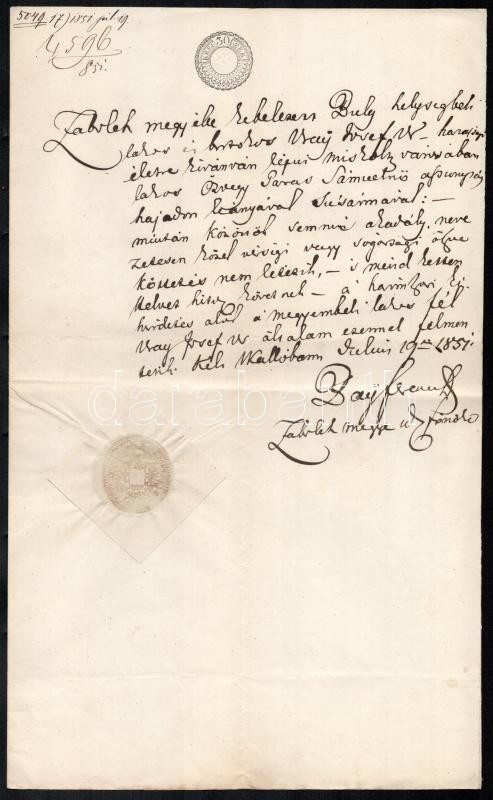 5049. 17/1851 júl. 19.
4596
851.
30
Zabolch megyébe kebelezett Buly helységbeli
lakos és birtokos Vay Jósef Ur – házassági
életre kivánván lépni Miskolcz városában
lakos Özvegy Paras Sámuelnő aszszonyság
hajadon leányával Susánnával: –
miután közöttök semmi akadály, neve
zetesen közel vérségi vagy sogorsági öszve
köttetés nem létezik, – is mind ketten
helvet hitw követnek – a háromszori ki
hirdetés alól a megyembeli lakos fél
Vay Jósef Ur általam ezennel felmen
tetik. Kelt N Kallóban Julius 19én 1851.
Bay Ferencz
Zabolch megye főnöke
darabanth